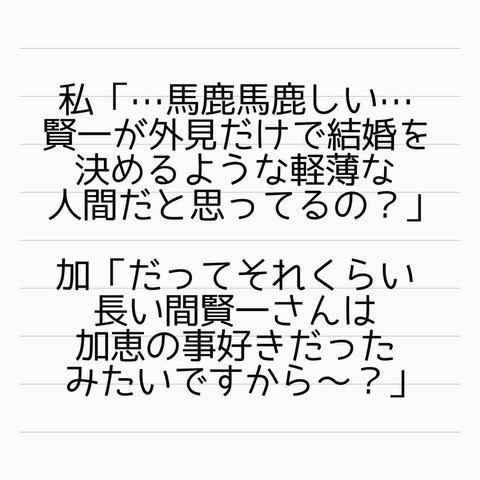 私「…馬鹿馬鹿しい…
賢一が外見だけで結婚を
決めるような軽薄な
人間だと思ってるの？」
加「だってそれくらい
長い間賢一さんは
加恵の事好きだった
みたいですから〜？」